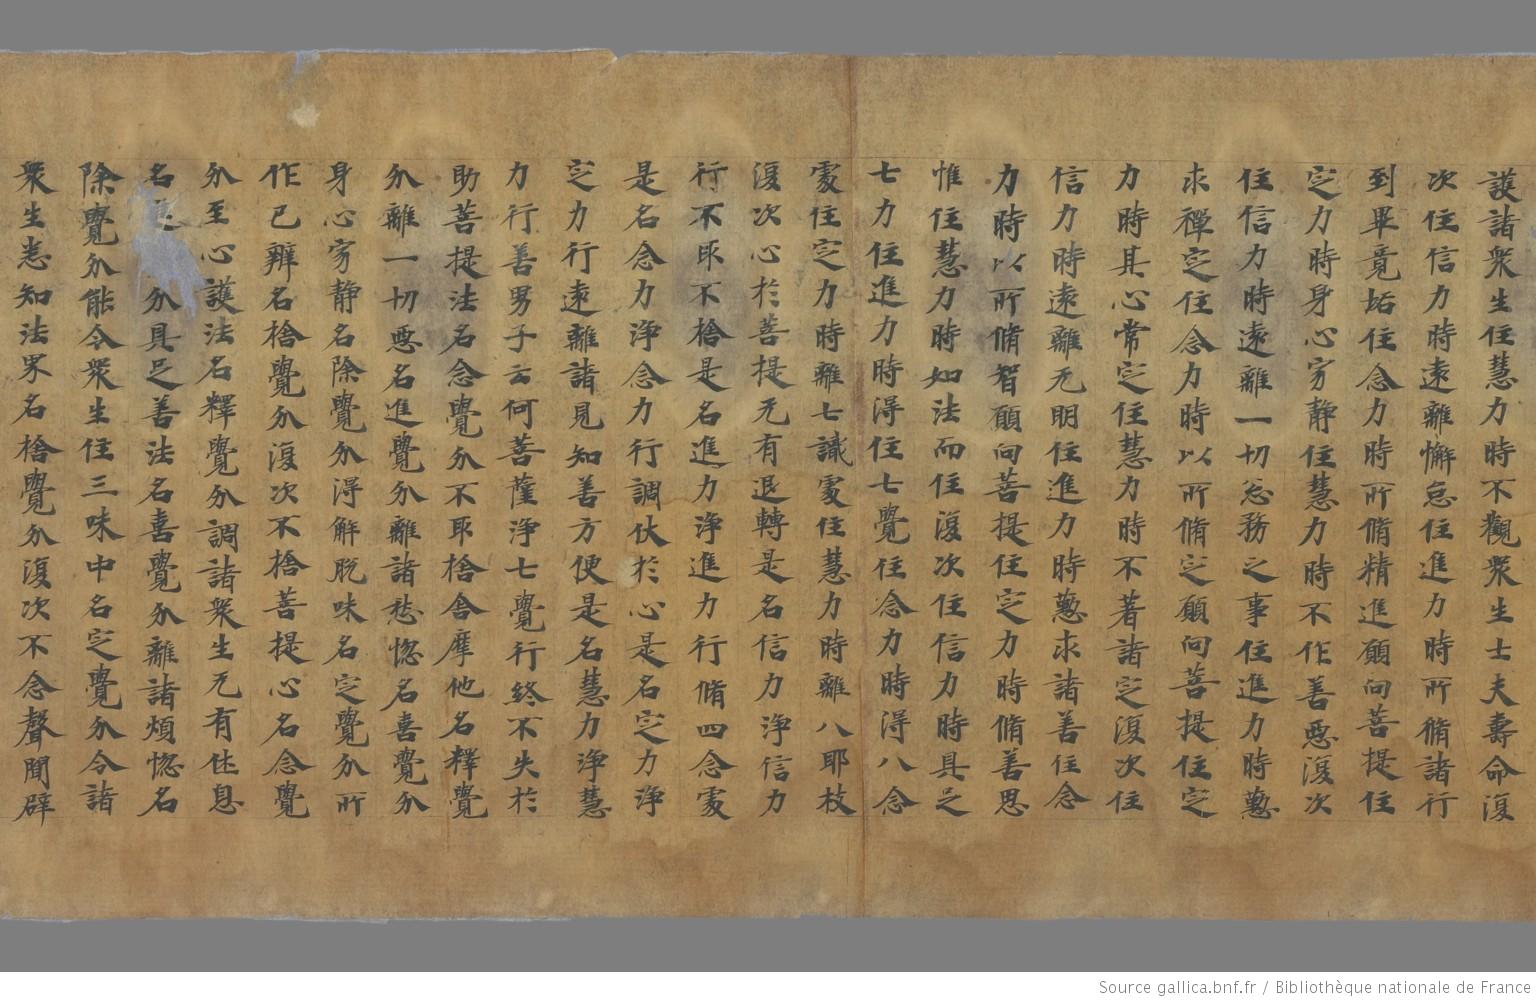 護諸衆生住慧力時不觀衆生士夫壽命復
次住信力時遠離懈怠住進力時所脩諸行
到畢竟垢住念力時所脩精進願向菩提住
定力時身心寂静住慧力時不作善惡復次
住信力時遠離一切忩務之事住進力時懃
求禪定住念力時以所脩定願向菩提住定
力時其心常定住慧力時不著諸定復次住
信力時遠離无明住進力時懃求諸善住念
力時以所脩智願向菩提住定力時脩善思
惟住慧力時如法而住復次住信力時具足
七力住進力時得住七覺住念力時得八念
處住定力時離七識處住慧力時離八耶枝
復次心於菩提无有退轉是名信力淨信力
行不取不捨是名進力淨進力行脩四念處
是名念力淨念力行調伏於心是名定力淨
定力行遠離諸見知善方便是名慧力淨慧
力行善男子云何菩薩淨七覺行終不失於
助菩提法名念覺分不取捨舍摩他名釋覺
分離一切惡名進覺分離諸愁惚名喜覺分
身心寂静名除覺分得解脫味名定覺分所
作已辦名捨覺分復次不捨菩提心名念覺
分至心護法名釋覺分調諸衆生无有休息
名 分具足善法名喜覺分離諸煩惚名
除覺分能令衆生住三昧中名定覺分令諸
衆生悉知法界名捨覺分復次不念聲聞辟
Source gallica.bnf.fr / Bibliothèque nationale de France